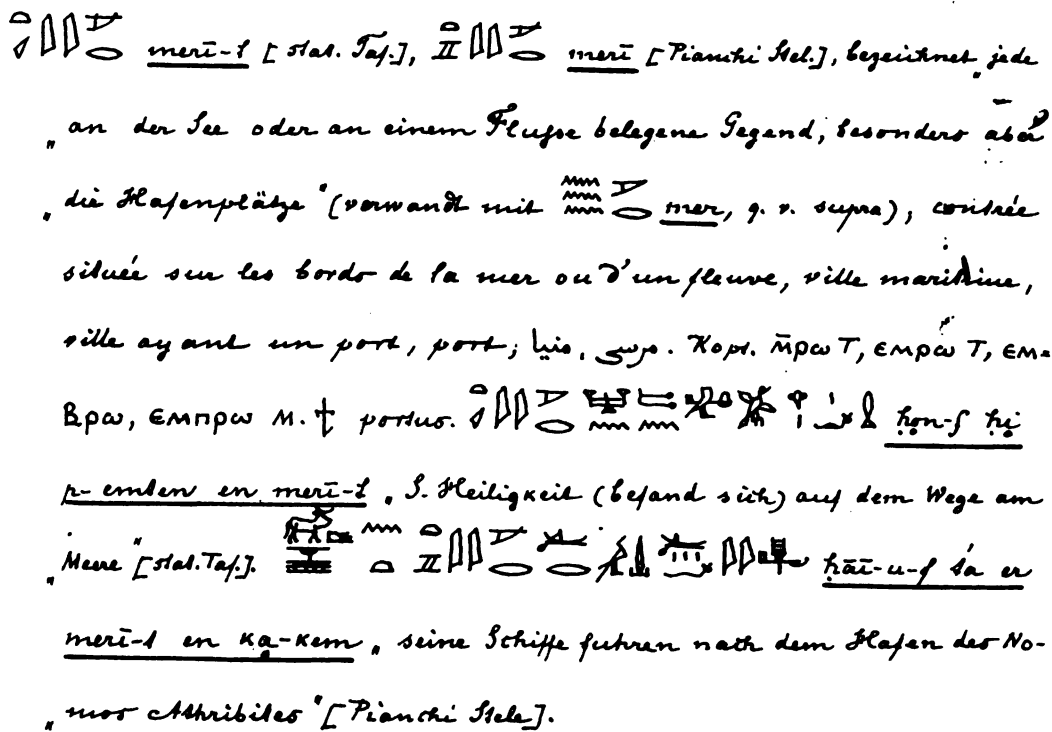 merī-t [stat. Taf.], merī [Pianchi Stel.], bezeichnet „jede
„an der See oder an einem Flusse belegene Gegend, besonders aber
„die Hafenplätze“ (verwandt mit mer, q. v. supra), contrée
située sur les bords de la mer ou d'un fleuve, ville maritime,
ville ayant un port, port; مرسى, مينا. Kopt. ⲙ̄ⲣⲱ T, ⲉⲙⲣⲱ T, ⲉⲙ=
ⲃⲣⲱ, ⲉⲙⲡⲣⲱ M. † portus. ḥon-f ḥi
p-emten en merī-t „S. Heiligkeit (befand sich) auf dem Wege am
„Meere“ [stat. Taf.]. ḥāī-u-f śa er
merī-t en ka-kem „seine Schiffe fuhren nach dem Hafen des No-
„mos Athribites“ [Pianchi Stele].